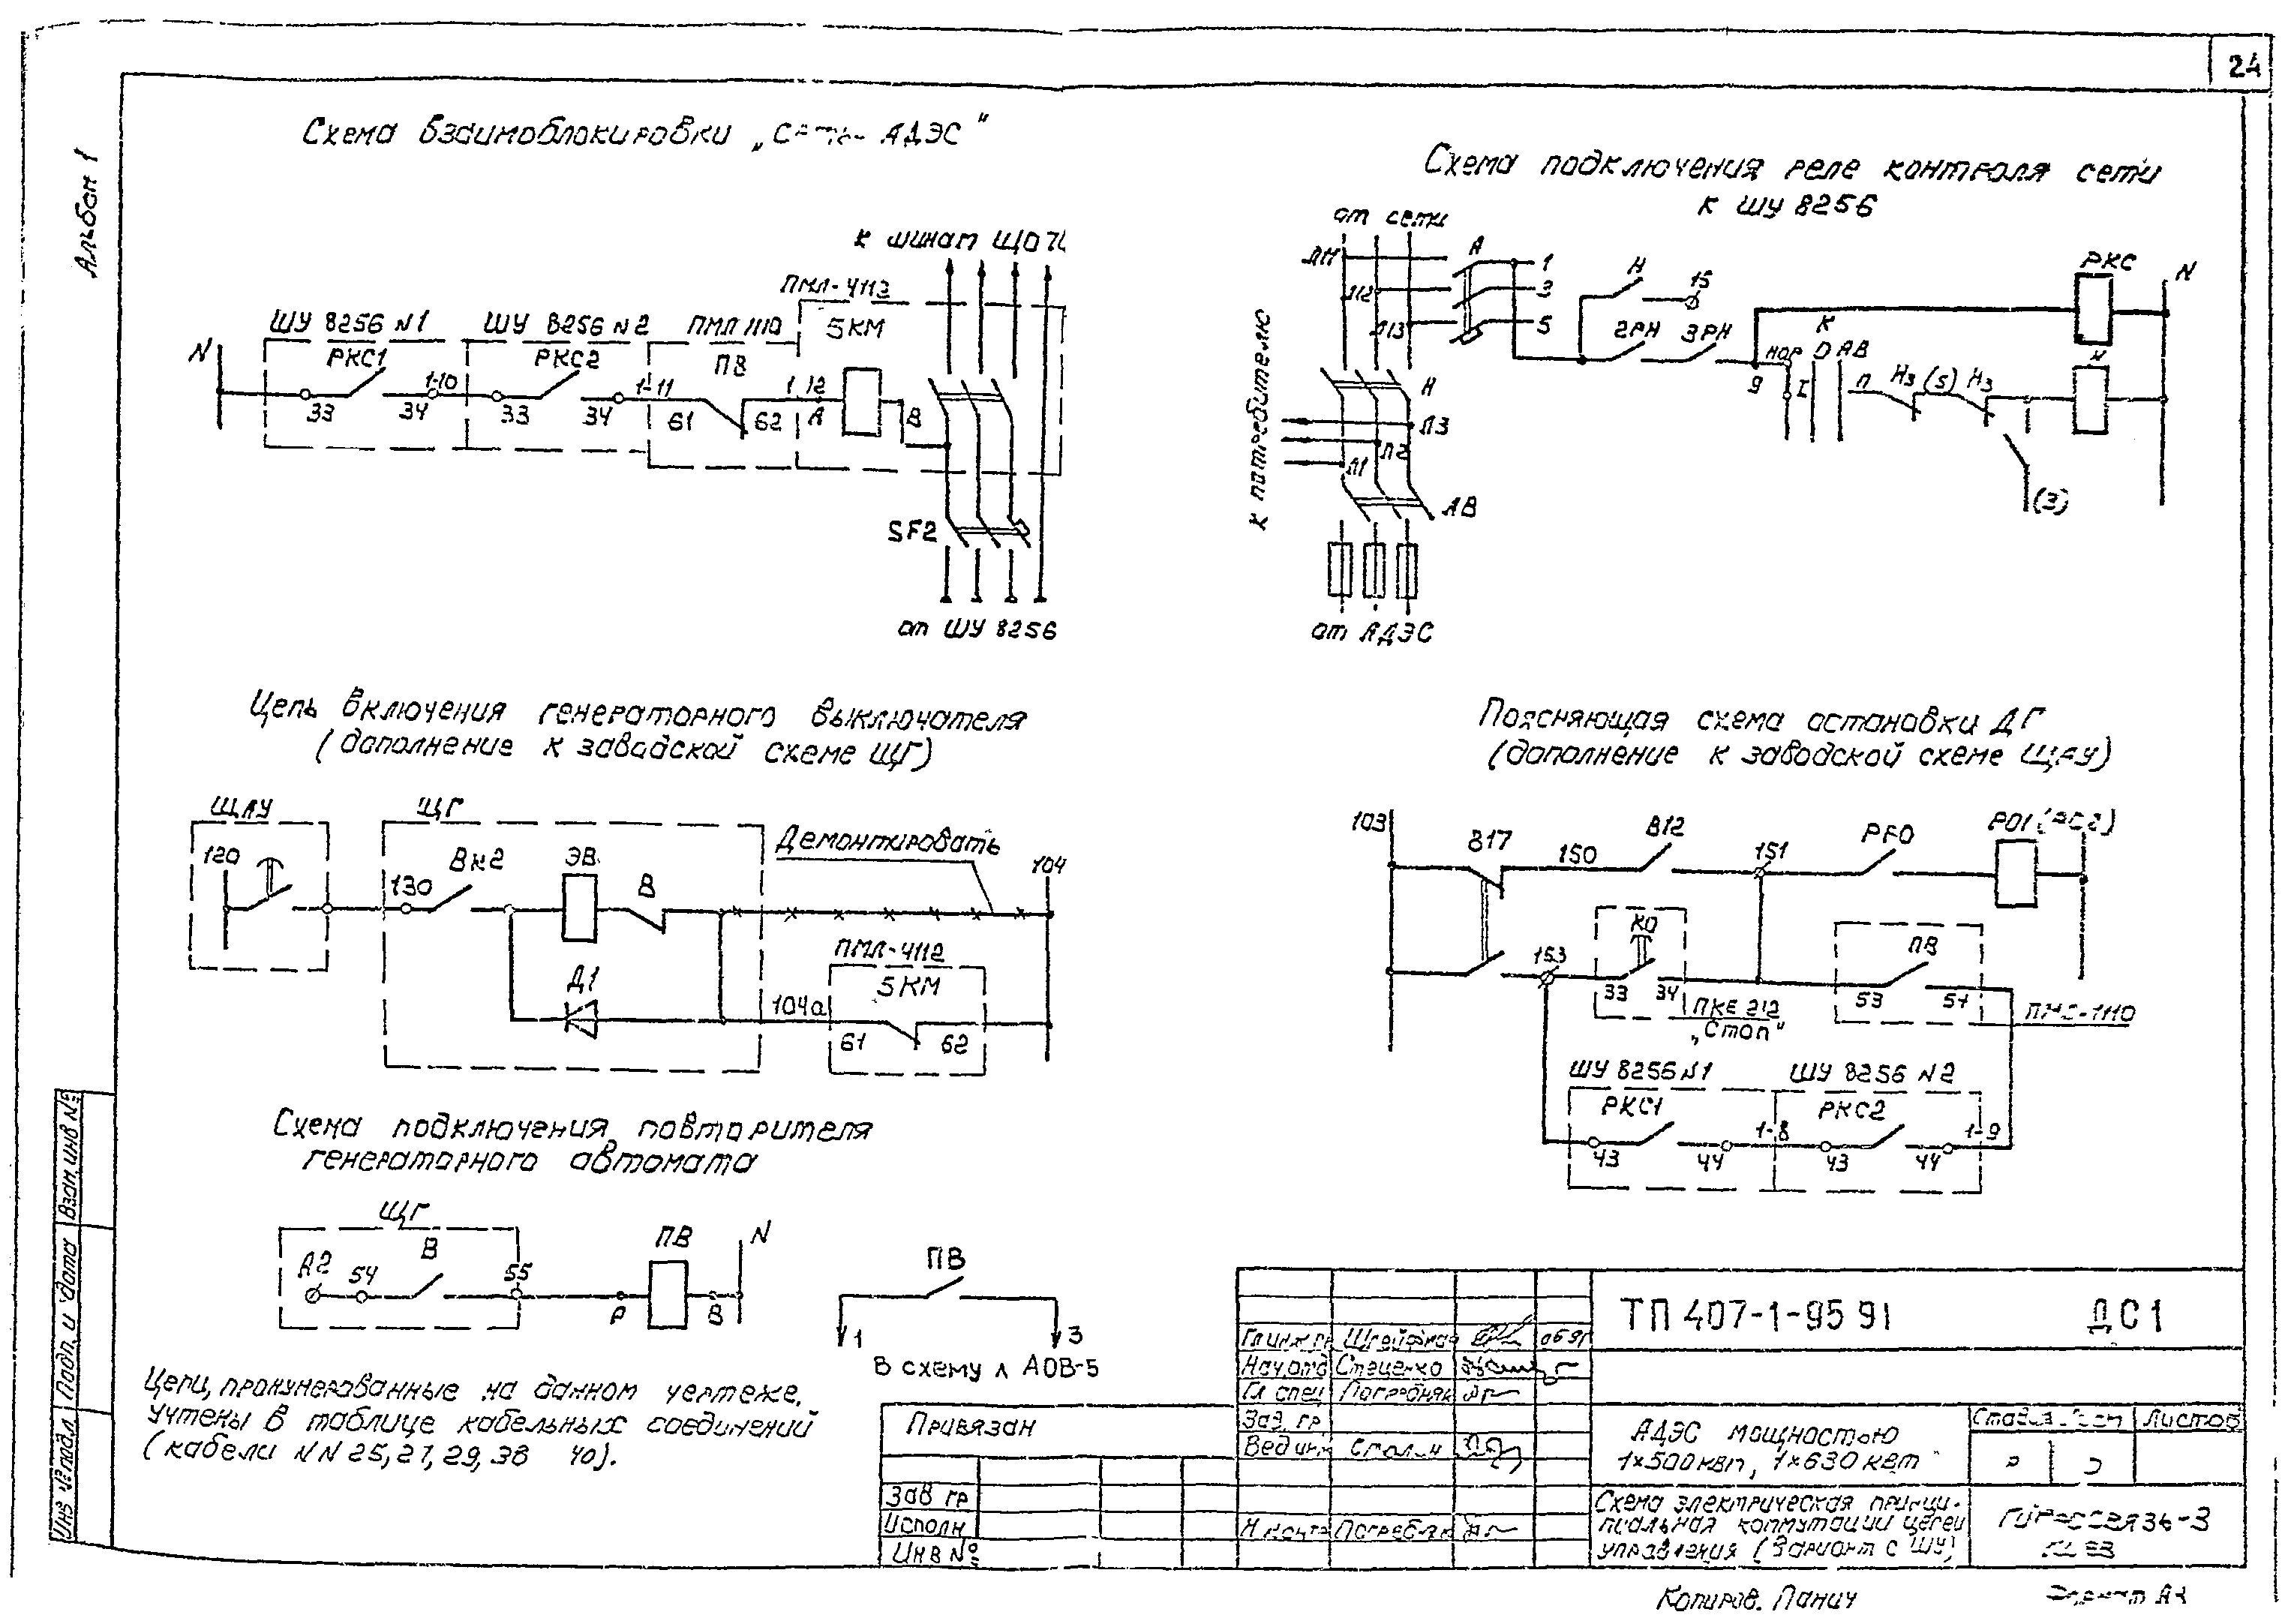 24
Альбом 1
Схема взаимоблокировки „Сеть- АДЭС"
к шинам ЩО
ПМЛ-4113
5КМ
ШУ 8256 N1
РКС1
ШУ 8256 N2
РКС2
ПМЛ 1110
ПВ
N
33
34
1-10
33
34
1-11
61
62
1-12
А
В
SF2
от ШУ 8256
Схема подключения реле контроля сети
к ШУ 8256
от сети
Л11
Л12
Л13
А
1
3
5
Н
15
2РН
3РН
РКС
N
К
НОР
О
АВ
9
I
П
НЗ
(5)
НЗ
Н
(3)
Н
Л3
Л2
Л1
АВ
к потребителю
от АДЭС
Цепь включения генераторного выключателя
(дополнение к заводской схеме ЩГ)
ЩАУ
120
ЩГ
130
Вк2
ЭВ
В
Д1
Демонтировать
104
ПМЛ-4112
5КМ
104а
61
62
Поясняющая схема остановки ДГ
(дополнение к заводской схеме ЩАУ)
103
В17
150
В12
151
РГО
РО1 (РС2)
153
КО
33
34
ПКЕ 212
„Стоп"
ПВ
53
54
1110
ШУ 8256 N1
РКС1
ШУ 8256 N2
РКС2
43
44
1-8
43
44
1-9
Схема подключения повторителя
генераторного автомата
ЩГ
А2
54
В
55
ПВ
А
В
N
ПВ
1
3
В схему л АОВ-5
Цепи, пронумерованные на данном чертеже,
учтены в таблице кабельных соединений
(кабели NN 25, 27, 29, 38 40).
Взам.инв №
Подп. и дата
Инв № подл.
Привязан
Зав гр
Исполн
Инв №
Гл инж пр
06 91
Нач.отд Стеценко
Гл спец
Зав. гр
Вед инж
Н.контр
ТП 407-1-95 91 ДС1
АДЭС мощностью
1×500 кВт, 1×630 кВт
Стадия Лист Листов
Р
Схема электрическая принци-
пиальная коммутации цепей
управления (Вариант с ШУ)
Гипросвязь-3
Киев
Копиров. Панич
Формат А3